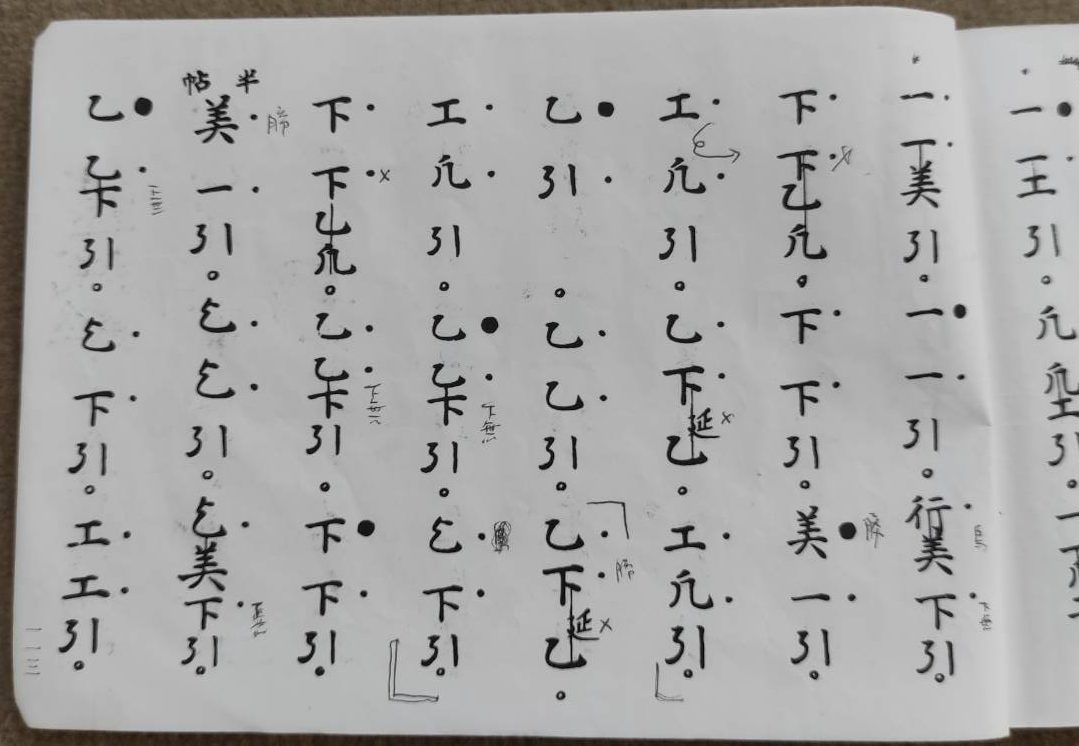 一●一工引。凢凢工引。
一・一・美引。一●一・引。行・美下・下無引。
下・下・乙凢。下・下・引。美●一・引。
工・凢・引。乙・下・延乙。工・凢・引。
乙●引・。乙・乙・引。乙・下・延乙。
工・凢・引。乙●乙・下下無引。乞・下・引。
下・下・乙凢。乙・乙・下下無引。下●下・引。
半帖
美・一・引。乞・乞・引。乞・美下・引。
乙●乙・下引。乞・下・引。工・工・引。
一一三